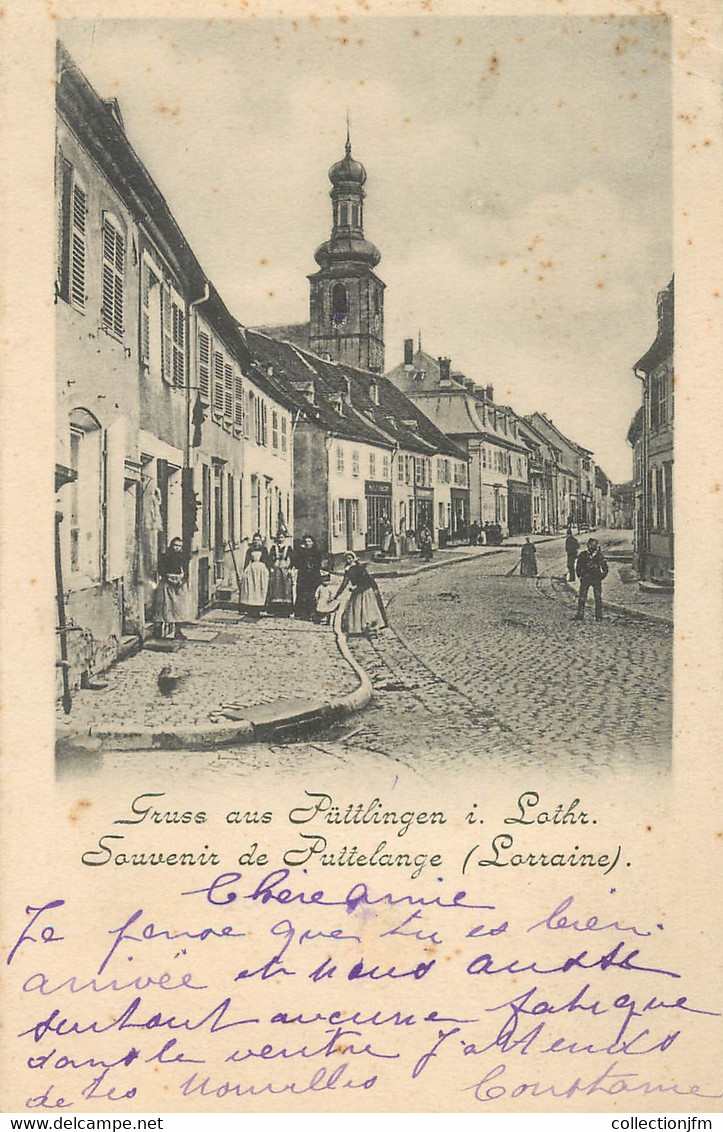 Gruss aus Püttlingen i. Lothr.
Souvenir de Puttelange (Lorraine).
Chère amie
Je pense que tu es bien
arrivée et nous aussi
surtout aucune fabrique
dans le ventre J'attends
des nouvelles Constance
delcampe.net
collectionjfm